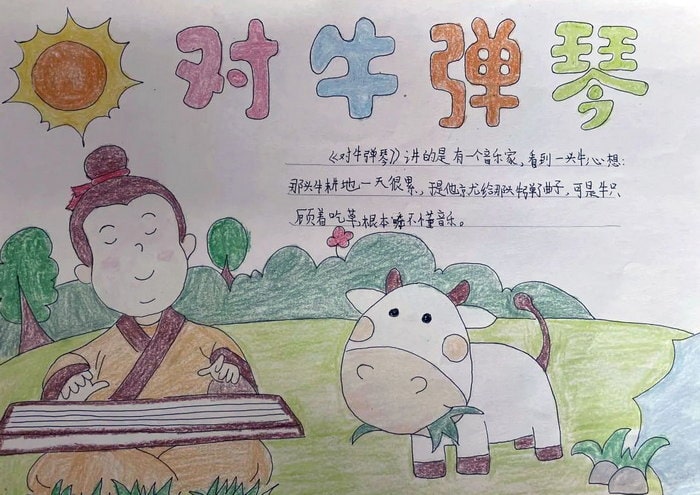 对牛弹琴
《对牛弹琴》讲的是有一个音乐家,看到一头牛心想:
那头牛耕地一天很累,于是他就给那头牛弹曲子,可是牛只
顾着吃草,根本听不懂音乐。